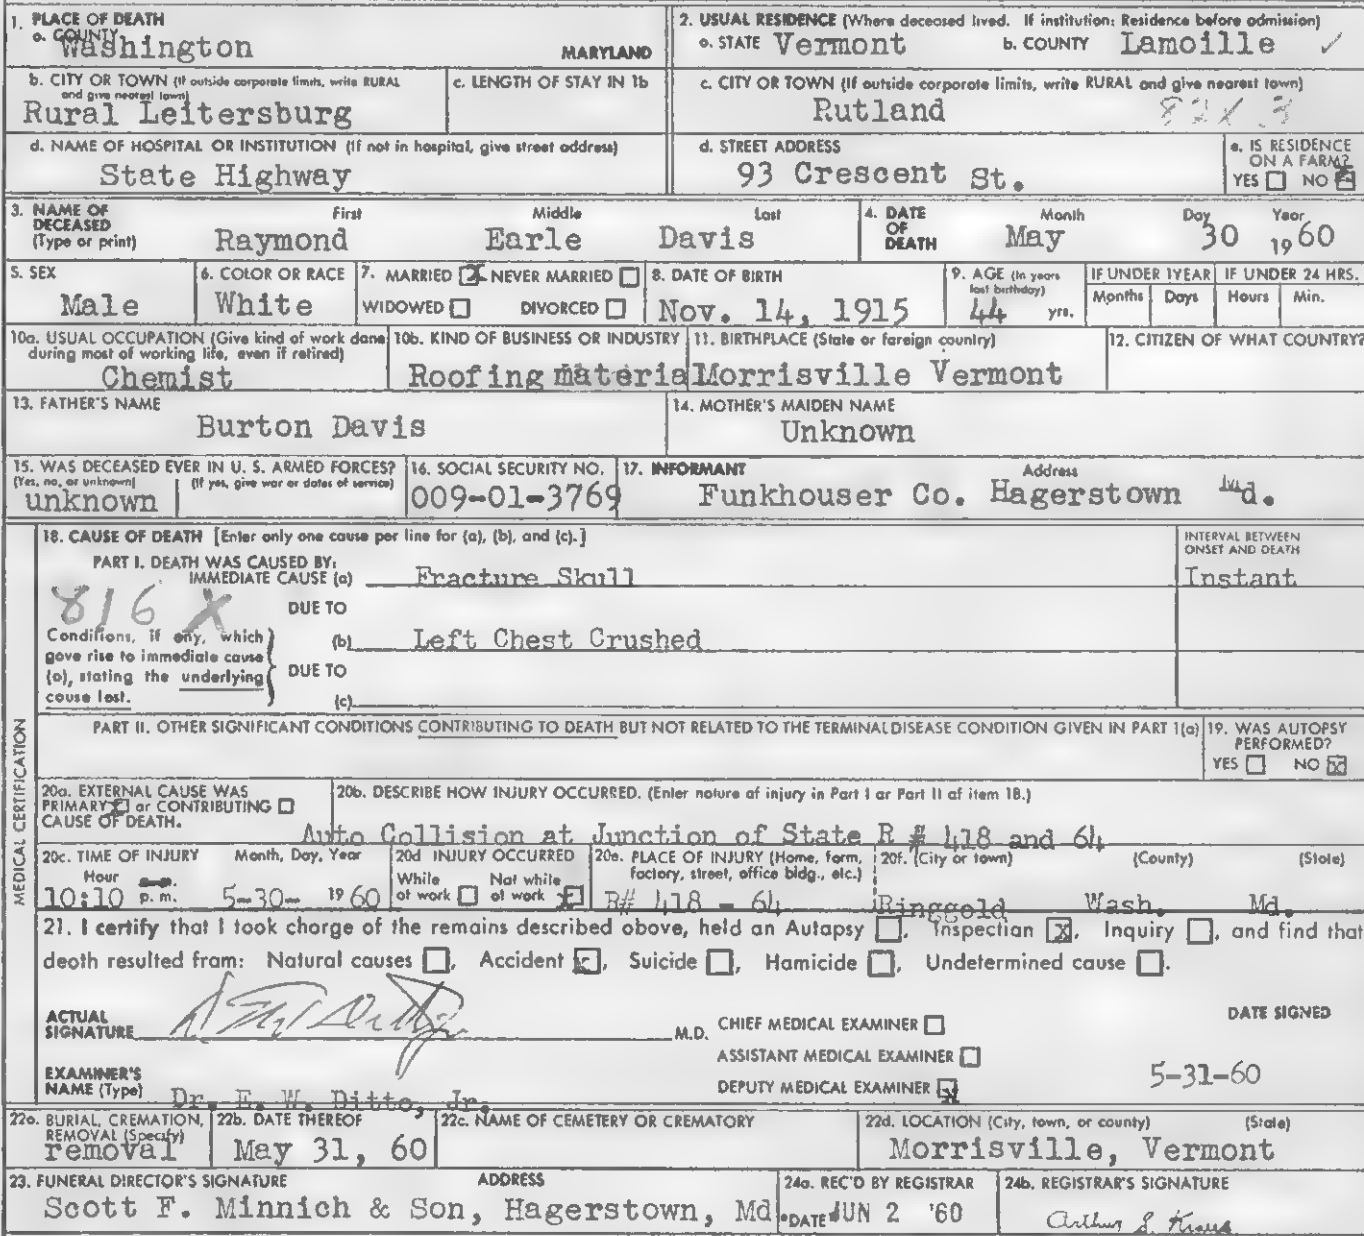 1. PLACE OF DEATH
a. COUNTY Washington MARYLAND
2. USUAL RESIDENCE (Where deceased lived. If institution: Residence before admission)
a. STATE Vermont b. COUNTY Lamoille ✓
b. CITY OR TOWN (If outside corporate limits, write RURAL and give nearest town)
Rural Leitersburg
c. LENGTH OF STAY IN 1b
c. CITY OR TOWN (If outside corporate limits, write RURAL and give nearest town)
Rutland
d. NAME OF HOSPITAL OR INSTITUTION (If not in hospital, give street address)
State Highway
d. STREET ADDRESS
93 Crescent St.
e. IS RESIDENCE ON A FARM?
YES ☐ NO ☒
3. NAME OF DECEASED (Type or print)
First Middle Last
Raymond Earle Davis
4. DATE OF DEATH
Month Day Year
May 30 1960
5. SEX
Male
6. COLOR OR RACE
White
7. MARRIED ☒ NEVER MARRIED ☐
WIDOWED ☐ DIVORCED ☐
8. DATE OF BIRTH
Nov. 14, 1915
9. AGE (In years last birthday)
44 yrs.
IF UNDER 1 YEAR
Months Days
IF UNDER 24 HRS.
Hours Min.
10a. USUAL OCCUPATION (Give kind of work done during most of working life, even if retired)
Chemist
10b. KIND OF BUSINESS OR INDUSTRY
Roofing materia
11. BIRTHPLACE (State or foreign country)
Morrisville Vermont
12. CITIZEN OF WHAT COUNTRY?
13. FATHER'S NAME
Burton Davis
14. MOTHER'S MAIDEN NAME
Unknown
15. WAS DECEASED EVER IN U. S. ARMED FORCES?
(Yes, no, or unknown) (If yes, give war or dates of service)
unknown
16. SOCIAL SECURITY NO.
009-01-3769
17. INFORMANT Address
Funkhouser Co. Hagerstown Md.
MEDICAL CERTIFICATION
18. CAUSE OF DEATH [Enter only one cause per line for (a), (b), and (c).]
INTERVAL BETWEEN ONSET AND DEATH
PART I. DEATH WAS CAUSED BY:
IMMEDIATE CAUSE (a) Fracture Skull Instant
816 X
DUE TO
Conditions, if any, which gave rise to immediate cause (a), stating the underlying cause last.
(b) Left Chest Crushed
DUE TO
(c)
PART II. OTHER SIGNIFICANT CONDITIONS CONTRIBUTING TO DEATH BUT NOT RELATED TO THE TERMINAL DISEASE CONDITION GIVEN IN PART I(a)
19. WAS AUTOPSY PERFORMED?
YES ☐ NO ☒
20a. EXTERNAL CAUSE WAS
PRIMARY ☒ or CONTRIBUTING ☐
CAUSE OF DEATH.
20b. DESCRIBE HOW INJURY OCCURRED. (Enter nature of injury in Part I or Part II of item 18.)
Auto Collision at Junction of State R # 418 and 64
20c. TIME OF INJURY Month, Day, Year
Hour a.m.
10:10 p. m. 5-30- 1960
20d INJURY OCCURRED
While at work ☐ Not while at work ☒
20e. PLACE OF INJURY (Home, farm, factory, street, office bldg., etc.)
R# 418 - 64
20f. (City or town) (County) (State)
Ringgold Wash. Md.
21. I certify that I took charge of the remains described above, held an Autopsy ☐, Inspection ☒, Inquiry ☐, and find that
death resulted from: Natural causes ☐, Accident ☒, Suicide ☐, Homicide ☐, Undetermined cause ☐.
ACTUAL SIGNATURE M.D.
CHIEF MEDICAL EXAMINER ☐
ASSISTANT MEDICAL EXAMINER ☐
DEPUTY MEDICAL EXAMINER ☒
DATE SIGNED
5-31-60
EXAMINER'S NAME (Type) Dr. E. W. Ditto, Jr.
22a. BURIAL, CREMATION, REMOVAL (Specify)
removal
22b. DATE THEREOF
May 31, 60
22c. NAME OF CEMETERY OR CREMATORY
22d. LOCATION (City, town, or county) (State)
Morrisville, Vermont
23. FUNERAL DIRECTOR'S SIGNATURE ADDRESS
Scott F. Minnich & Son, Hagerstown, Md.
24a. REC'D BY REGISTRAR
DATE JUN 2 '60
24b. REGISTRAR'S SIGNATURE
Arthur S. Kraus